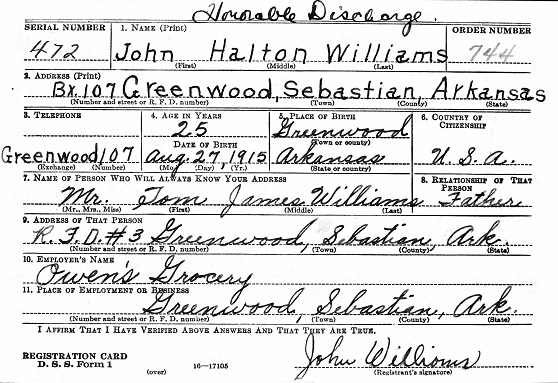 Honorable Discharge.
SERIAL NUMBER 1. NAME (Print) ORDER NUMBER
472 John Halton Williams 744
(First) (Middle) (Last)
2. ADDRESS (Print)
Bx. 107 Greenwood, Sebastian, Arkansas
(Number and street or R. F. D. number) (Town) (County) (State)
3. TELEPHONE 4. AGE IN YEARS 5. PLACE OF BIRTH 6. COUNTRY OF CITIZENSHIP
25 Greenwood
(Town or county)
DATE OF BIRTH
Greenwood 107 Aug. 27, 1915 Arkansas U. S. A.
(Exchange) (Number) (Mo.) (Day) (Yr.) (State or country)
7. NAME OF PERSON WHO WILL ALWAYS KNOW YOUR ADDRESS 8. RELATIONSHIP OF THAT PERSON
Mr. Tom James Williams Father
(Mr., Mrs., Miss) (First) (Middle) (Last)
9. ADDRESS OF THAT PERSON
R. F. D. #3 Greenwood, Sebastian, Ark.
(Number and street or R. F. D. number) (Town) (County) (State)
10. EMPLOYER'S NAME
Owen's Grocery
11. PLACE OF EMPLOYMENT OR BUSINESS
Greenwood, Sebastian, Ark.
(Number and street or R. F. D. number) (Town) (County) (State)
I AFFIRM THAT I HAVE VERIFIED ABOVE ANSWERS AND THAT THEY ARE TRUE.
John Williams
REGISTRATION CARD
D. S. S. Form 1 (over) 16—17105 (Registrant's signature)